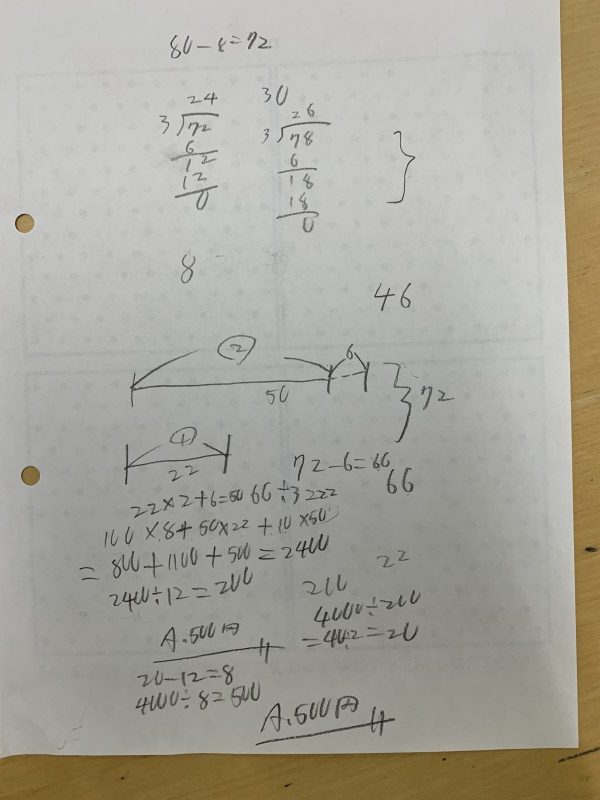 80-8=72
24
3)72
6
12
12
0
30
26
3)78
6
18
18
0
8
46
② 6
50
72
①
22
72-6=66
66
22×2+6=50 66÷3=22
100×8+50×22+10×50
=800+1100+500=2400
2400÷12=200
22
200
4000÷200
=40÷2=20
A.500円
20-12=8
4000÷8=500
A.500円